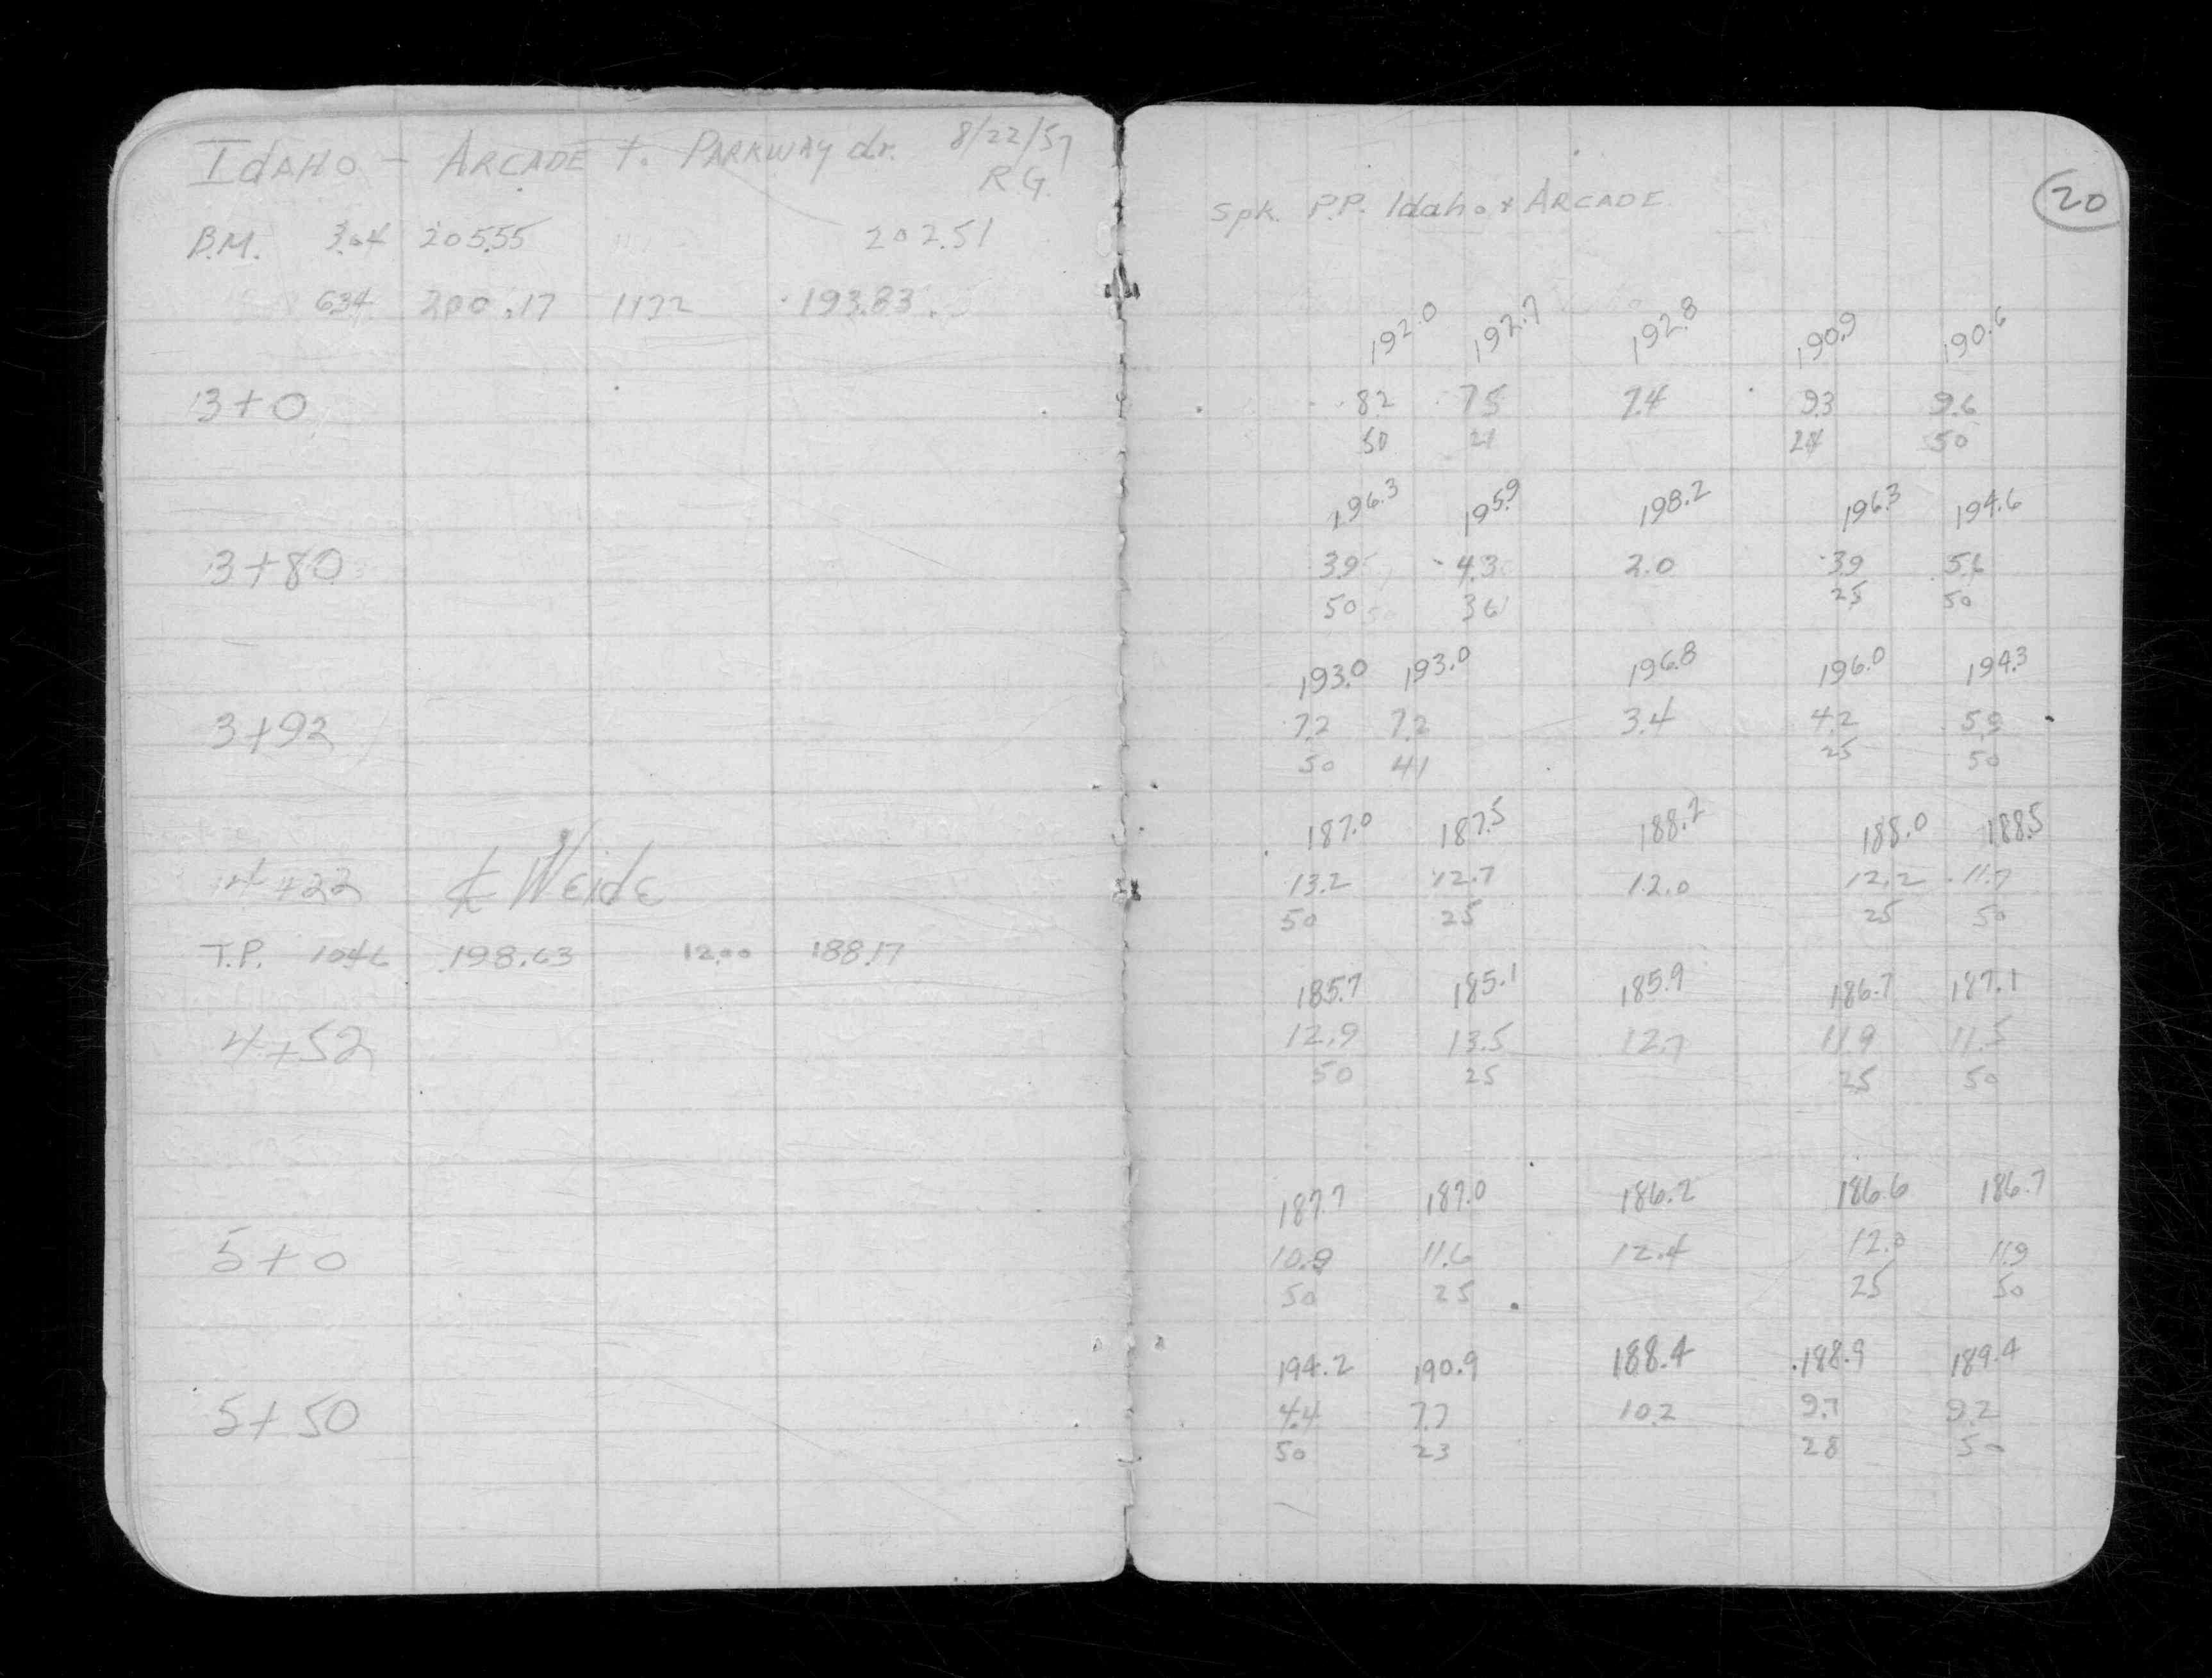 IDAHO - ARCADE to PARKWAY dr. 8/22/57
R.G.
B.M. 3.04 205.55 202.51
6.34 200.17 11.72 193.83
3+0
3+80
3+92
4+22 ℄ WEIDE
T.P. 10.46 198.63 12.00 188.17
4+52
5+0
5+50
20
Spk. P.P. Idaho + ARCADE
192.0 192.7 192.8 190.9 190.6
8.2 7.5 7.4 9.3 9.6
50 21 24 50
196.3 195.9 198.2 196.3 194.6
3.9 4.3 2.0 3.9 5.6
50 36 25 50
193.0 193.0 196.8 196.0 194.3
7.2 7.2 3.4 4.2 5.9
50 41 25 50
187.0 187.5 188.2 188.0 188.5
13.2 12.7 12.0 12.2 11.7
50 25 25 50
185.7 185.1 185.9 186.7 187.1
12.9 13.5 12.7 11.9 11.5
50 25 25 50
187.7 187.0 186.2 186.6 186.7
10.9 11.6 12.4 12.0 11.9
50 25 25 50
194.2 190.9 188.4 188.9 189.4
4.4 7.7 10.2 9.7 9.2
50 23 28 50